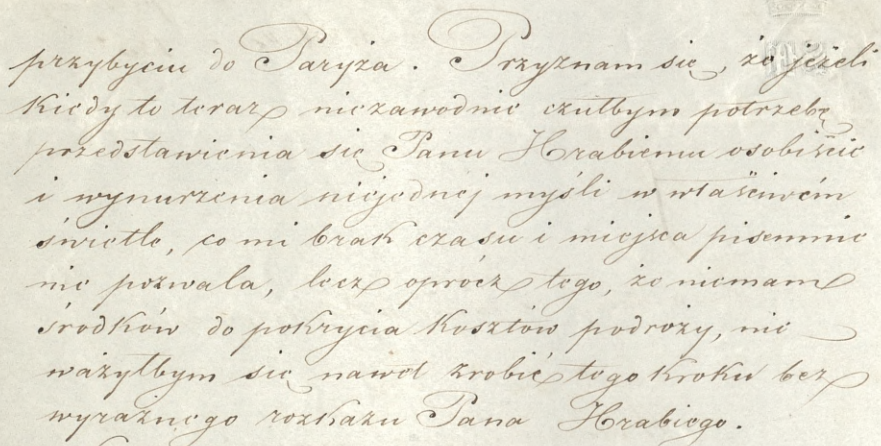 przybyciu do Paryża. Przyznam się, że jeżeli
kiedy to teraz niezawodnie czułbym potrzebę
przedstawienia się Panu Hrabiemu osobiście
i wynurzenia niejednej myśli w właściwém
świetle, co mi brak czasu i miejsca pisemnie
nie pozwala, lecz oprócz tego, że niemam
środków do pokrycia kosztów podroży, nie
ważyłbym się nawet zrobić tego kroku bez
wyraźnego rozkazu Pana Hrabiego.